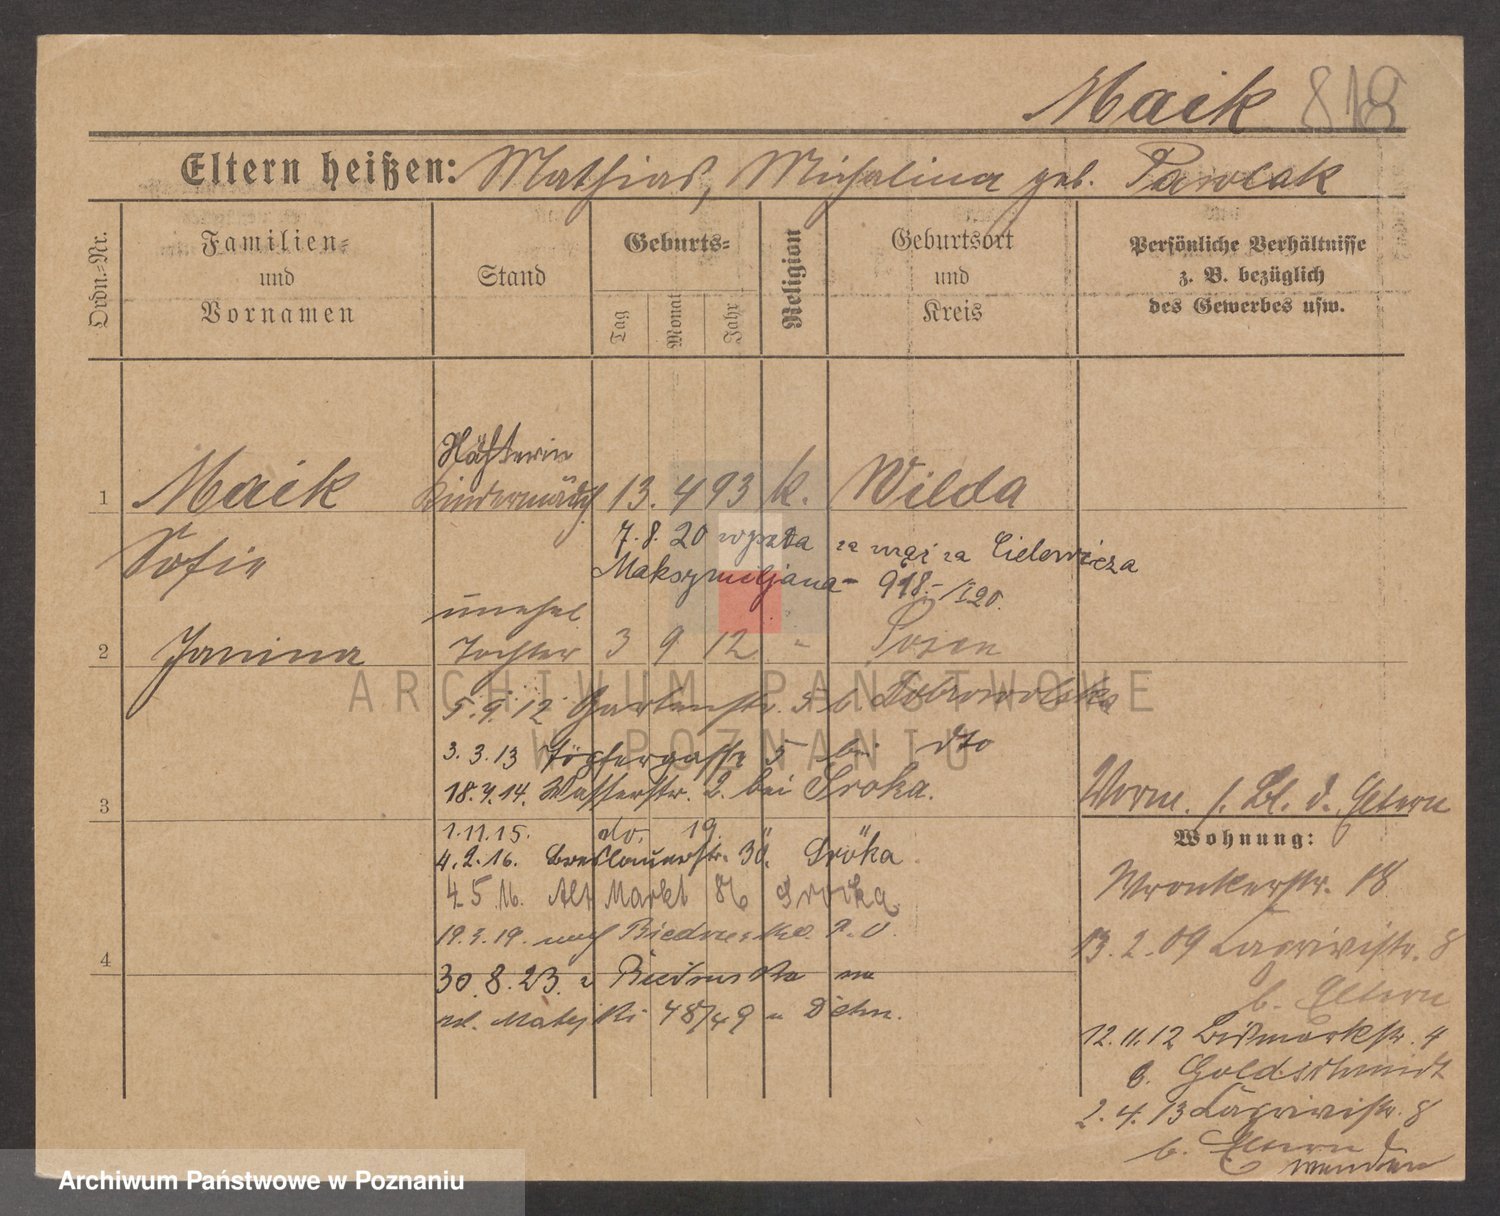 Maik 818
Eltern heißen: Mathias, Michalina geb. Pawlak
Ordn.-Nr.
Familien- und Vornamen
Stand
Geburts-
Tag
Monat
Jahr
Religion
Geburtsort und Kreis
Persönliche Verhältnisse z. B. bezüglich des Gewerbes usw.
Nähterin
1 Maik Kindermädch 13. 4 93 k. Wilda
Sofie
7. 8. 20 wyszła za mąż za Cielewicza
Maksymiljana - 918.-/I20.
unehel
2 Janina Tochter 3 9 12 " Posen
5. 9. 12 Gartenstr. 5 b Dobrowolska
3. 3. 13 Töpfergasse 5 bei dto
18. 4. 14. Wasserstr. 2. bei Sroka.
3
1. 11. 15. do, 19.
4. 2. 16. Breslauerstr. 30. Sroka
4 5 16. Alt Markt 86 Sroka
19. 3. 19. nach Biedrusko P. O.
4
30. 8. 23. z Biedruska na
ul. Matejki 48/49 u Dehn.
Worm. s. Bl. d. Eltern
Wohnung:
Wronkerstr. 18
13. 2. 09 8
b. Eltern
12. 11. 12 Bismarkstr. 4
b. Goldschmidt
2. 4. 13 8
b. Eltern
wenden
ARCHIWUM PAŃSTWOWE
W POZNANIU
Archiwum Państwowe w Poznaniu